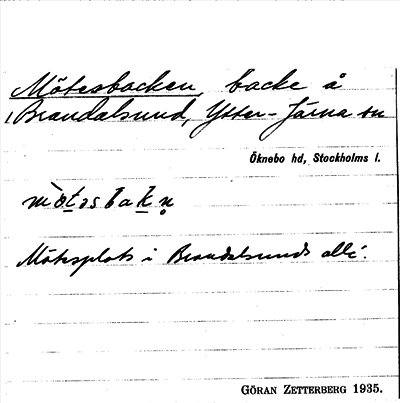 Mötesbacken, backe å
Brandalsund, Ytter-Järna sn
Öknebo hd, Stockholms l.
mö̀təsbakn̥
Mötesplats i Brandalsunds allé.
GÖRAN ZETTERBERG 1935.